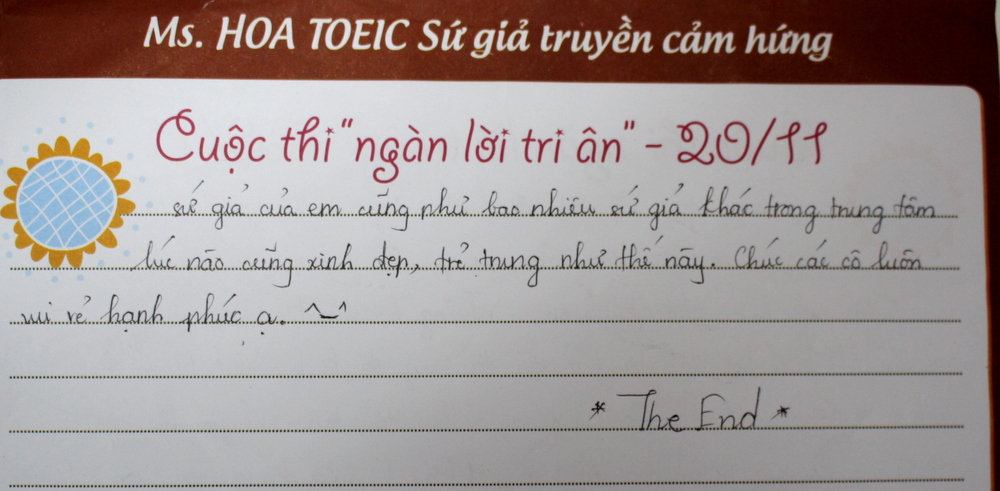 Ms. HOA TOEIC Sứ giả truyền cảm hứng
Cuộc thi "ngàn lời tri ân" - 20/11
sứ giả của em cũng như bao nhiêu sứ giả khác trong trung tâm
lúc nào cũng xinh đẹp, trẻ trung như thế này. Chúc các cô luôn
vui vẻ hạnh phúc ạ. ^_^
* The End *